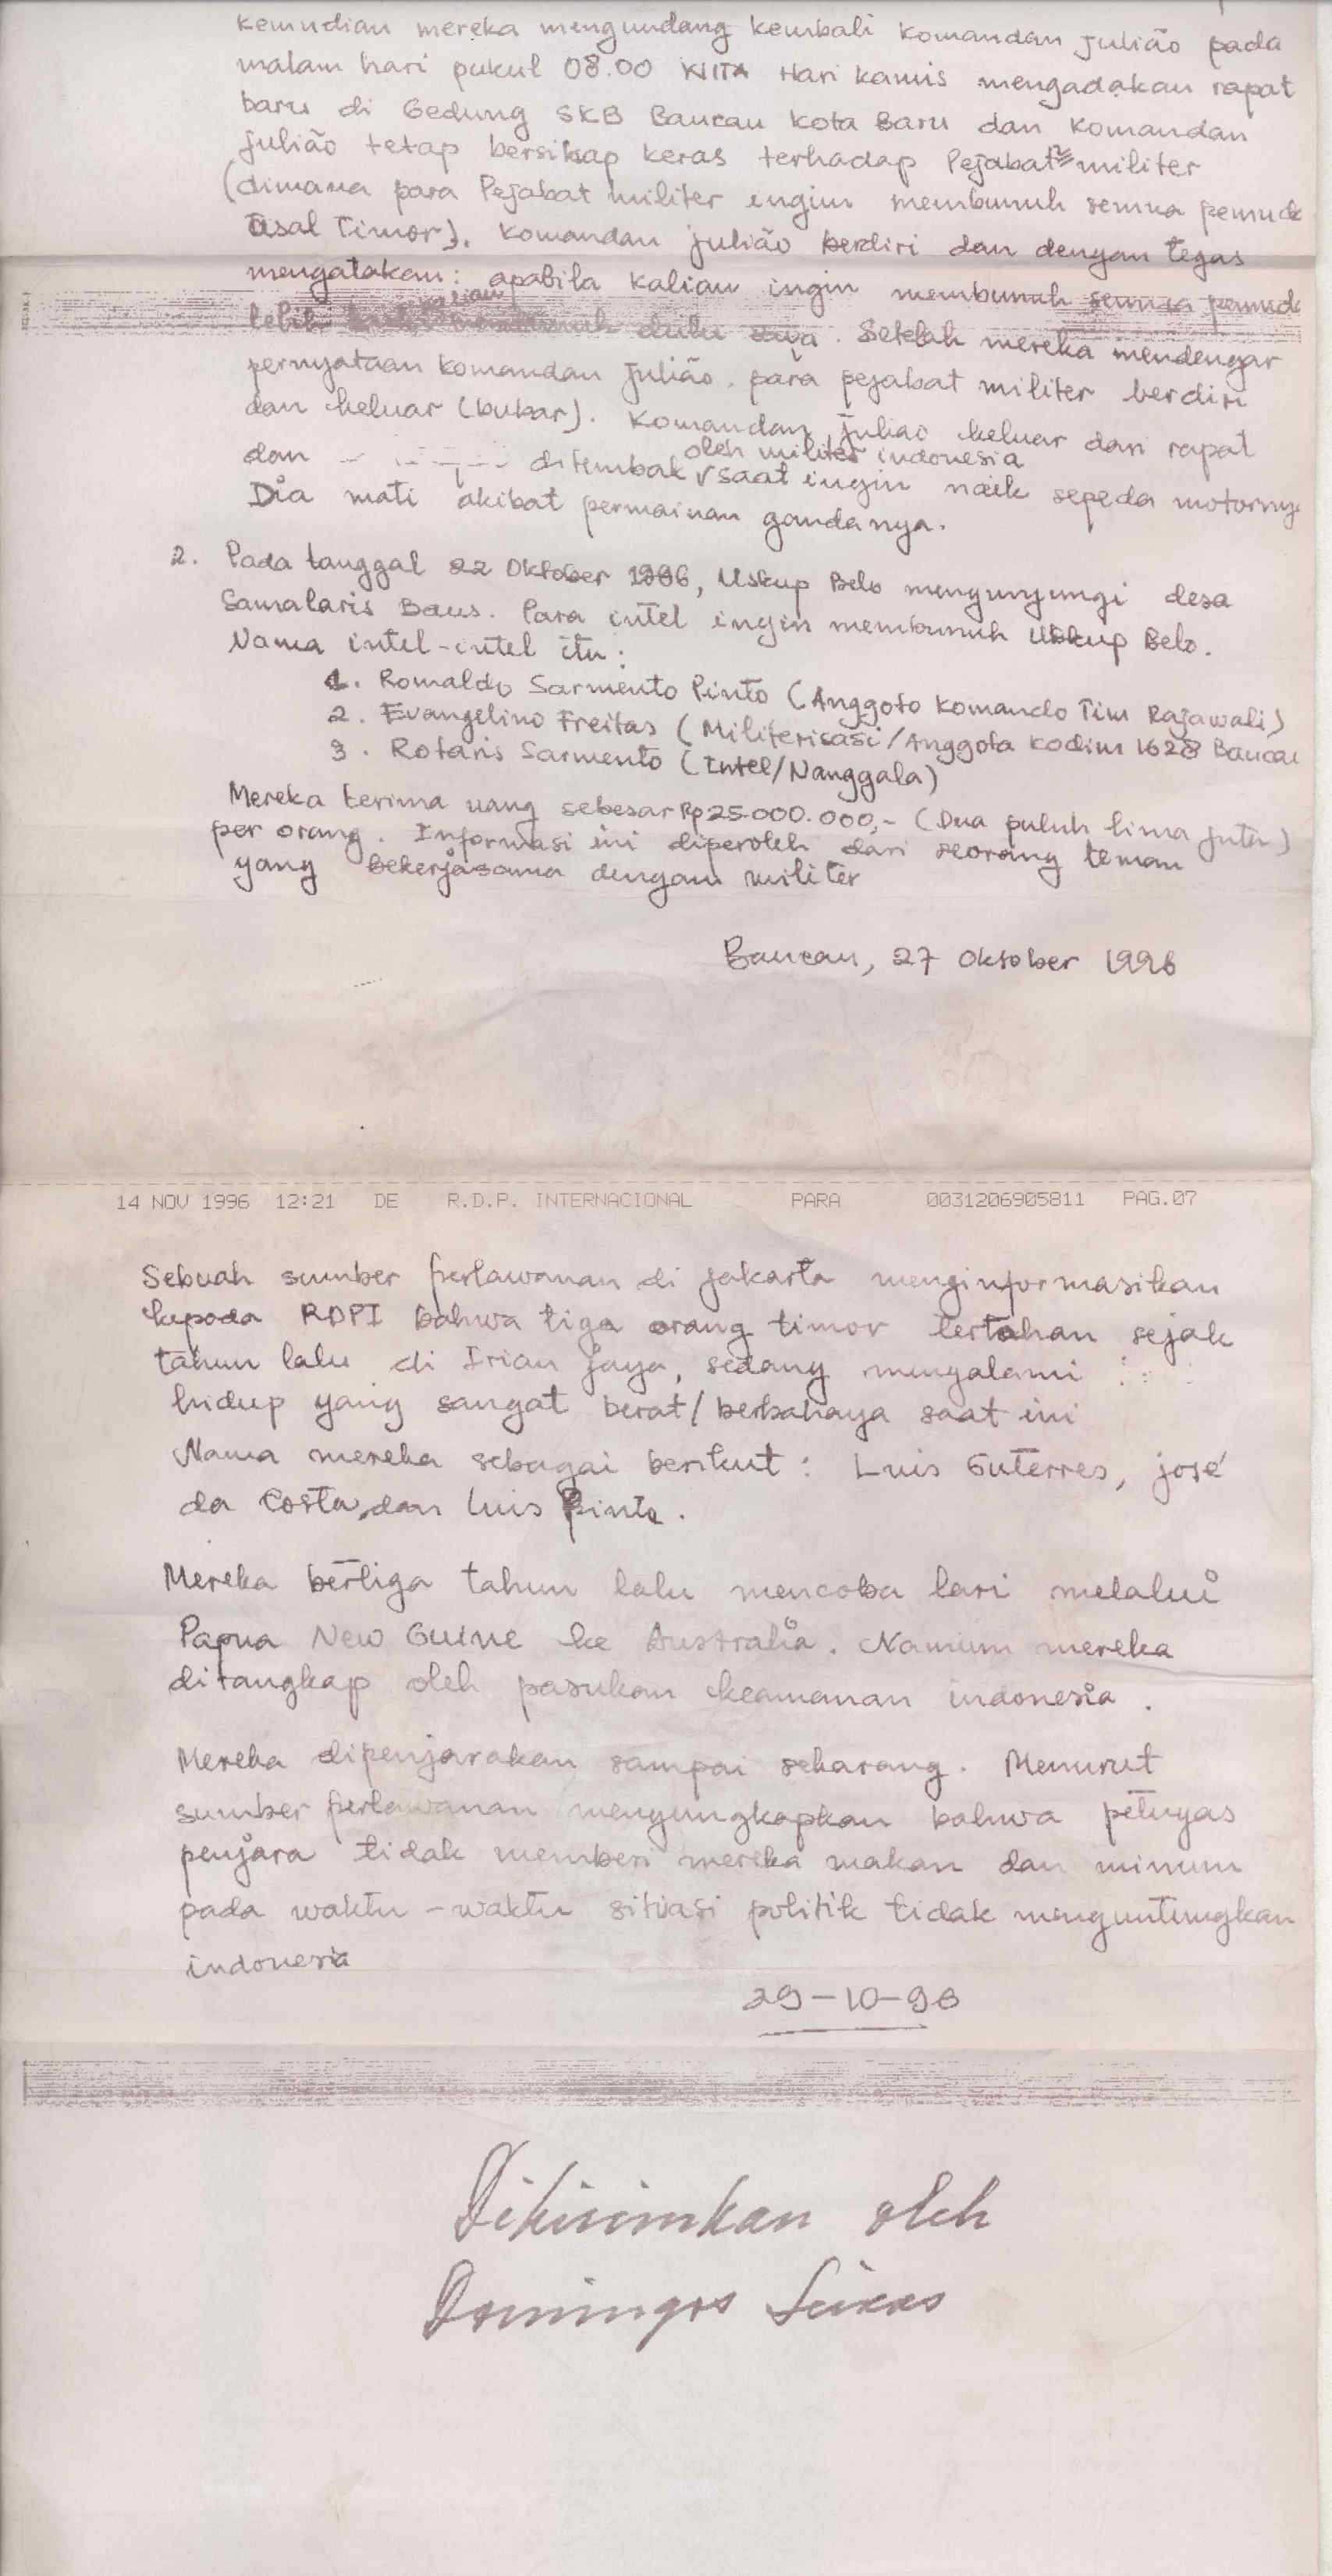 kemudian mereka mengundang kembali komandan Julião pada
malam hari pukul 08.00 WITA Hari kamis mengadakan rapat
baru di Gedung SKB Baucau Kota Baru dan Komandan
Julião tetap bersikap keras terhadap Pejabat² militer
(dimana para Pejabat militer ingin membunuh semua pemud
asal Timor). Komandan Julião berdiri dan dengan tegas
mengatakan: apabila kalian ingin membunuh semua pemud
lebih kalian dulu saya. Setelah mereka mendengar
pernyataan Komandan Julião, para pejabat militer berdiri
dan keluar (bubar). Komandan Juliao keluar dari rapat
dan ditembak oleh militer indonesia saat ingin naik sepeda motorny
Dia mati akibat permainan gandanya.
2. Pada tanggal 22 Oktober 1996, Uskup Belo mengunjungi desa
Samalaris Baus. Para intel ingin membunuh Uskup Belo.
Nama intel-intel itu:
1. Romaldo Sarmento Pinto (Anggoto Komando Tim Rajawali)
2. Evangelino Freitas (Militerisasi/Anggota Kodim 1628 Baucau
3. Rotaris Sarmento (Intel/Nanggala)
Mereka terima uang sebesar Rp 25.000.000,- (Dua puluh lima juta)
per orang. Informasi ini diperoleh dari seorang teman
yang bekerjasama dengan militer
Baucau, 27 Oktober 1996
14 NOV 1996 12:21 DE R.D.P. INTERNACIONAL PARA 0031206905811 PAG.07
Sebuah sumber perlawanan di jakarta menginformasikan
kepada RDPI bahwa tiga orang timor tertahan sejak
tahun lalu di Irian Jaya, sedang mengalami
hidup yang sangat berat/berbahaya saat ini
Nama mereka sebagai berikut: Luis Guterres, josé
da Costa, dan Luis Pinto.
Mereka bertiga tahun lalu mencoba lari melalui
Papua New Guine ke Australia. Namun mereka
ditangkap oleh pasukan keamanan indonesia.
Mereka dipenjarakan sampai sekarang. Menurut
sumber perlawanan mengungkapkan bahwa petugas
penjara tidak memberi mereka makan dan minum
pada waktu-waktu situasi politik tidak menguntungkan
indonesia
29-10-96
Dikirimkan oleh
Domingos Seixas